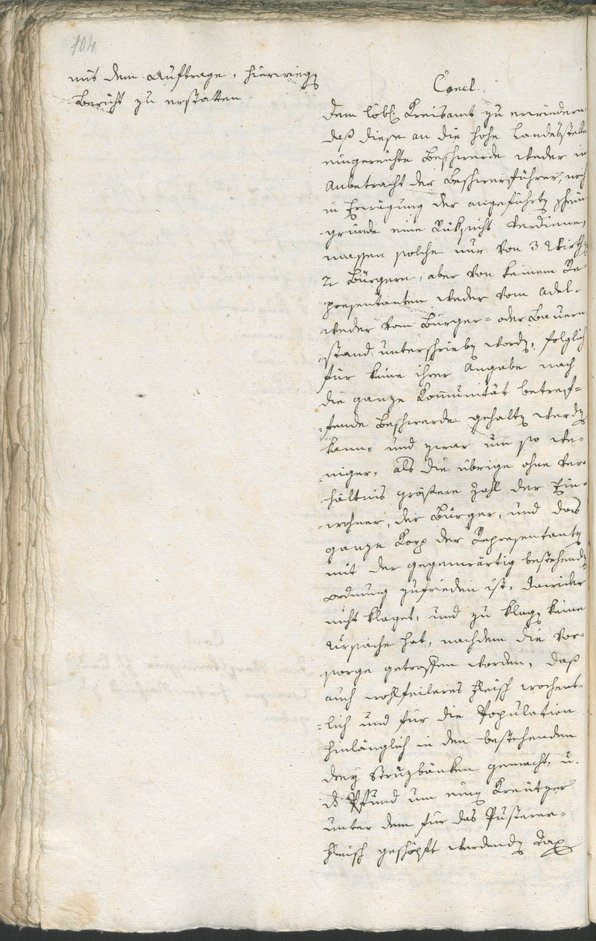 104
mit dem Auftrage, hierwegen
Bericht zu erstatten.
Concl.
Dem löbl. Kreisamt zu erwiedern
daß diese an die hohe Landesstelle
eingereichte Beschwerde weder in
Anbetracht der Beschwerführer, noch
in Erwägung der angeführten Schein
gründe eine Rüksicht verdienen,
massen solche nur von 3 Wirth
2 Bürgern, aber von keinem Re-
presentanten weder vom Adel-
weder vom Bürger- oder Bauern
stand unterschrieben worden, folglich
für keine ihrer Angabe nach
die ganze Kommunität betref-
fende Beschwerde gehalten werden
kann, und zwar um so we-
niger, als die übrige ohne Ver-
hältnis größere Zahl der Ein-
wohner, der Bürger, und das
ganze Korp der Representanten
mit der gegenwärtig bestehenden
Ordnung zufrieden ist, dawider
nicht klaget, und zu klagen keine
Ursache hat, nachdem die Vor-
sorge getroffen worden, daß
auch wohlfeileres Fleisch wochent-
lich und für die Population
hinlänglich in den bestehenden
drey Bänken gemacht, u.
das Pfund um einen Kreutzer
unter dem für das Pusterer-
fleisch geschöpft werdenden Tax